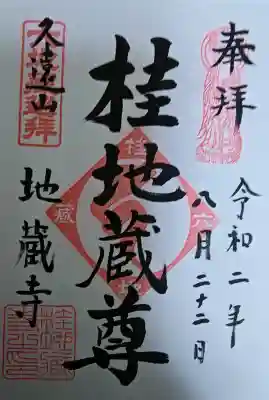 奉拝
令和二年
八月二十二日
桂地蔵尊
久遠山
地蔵寺